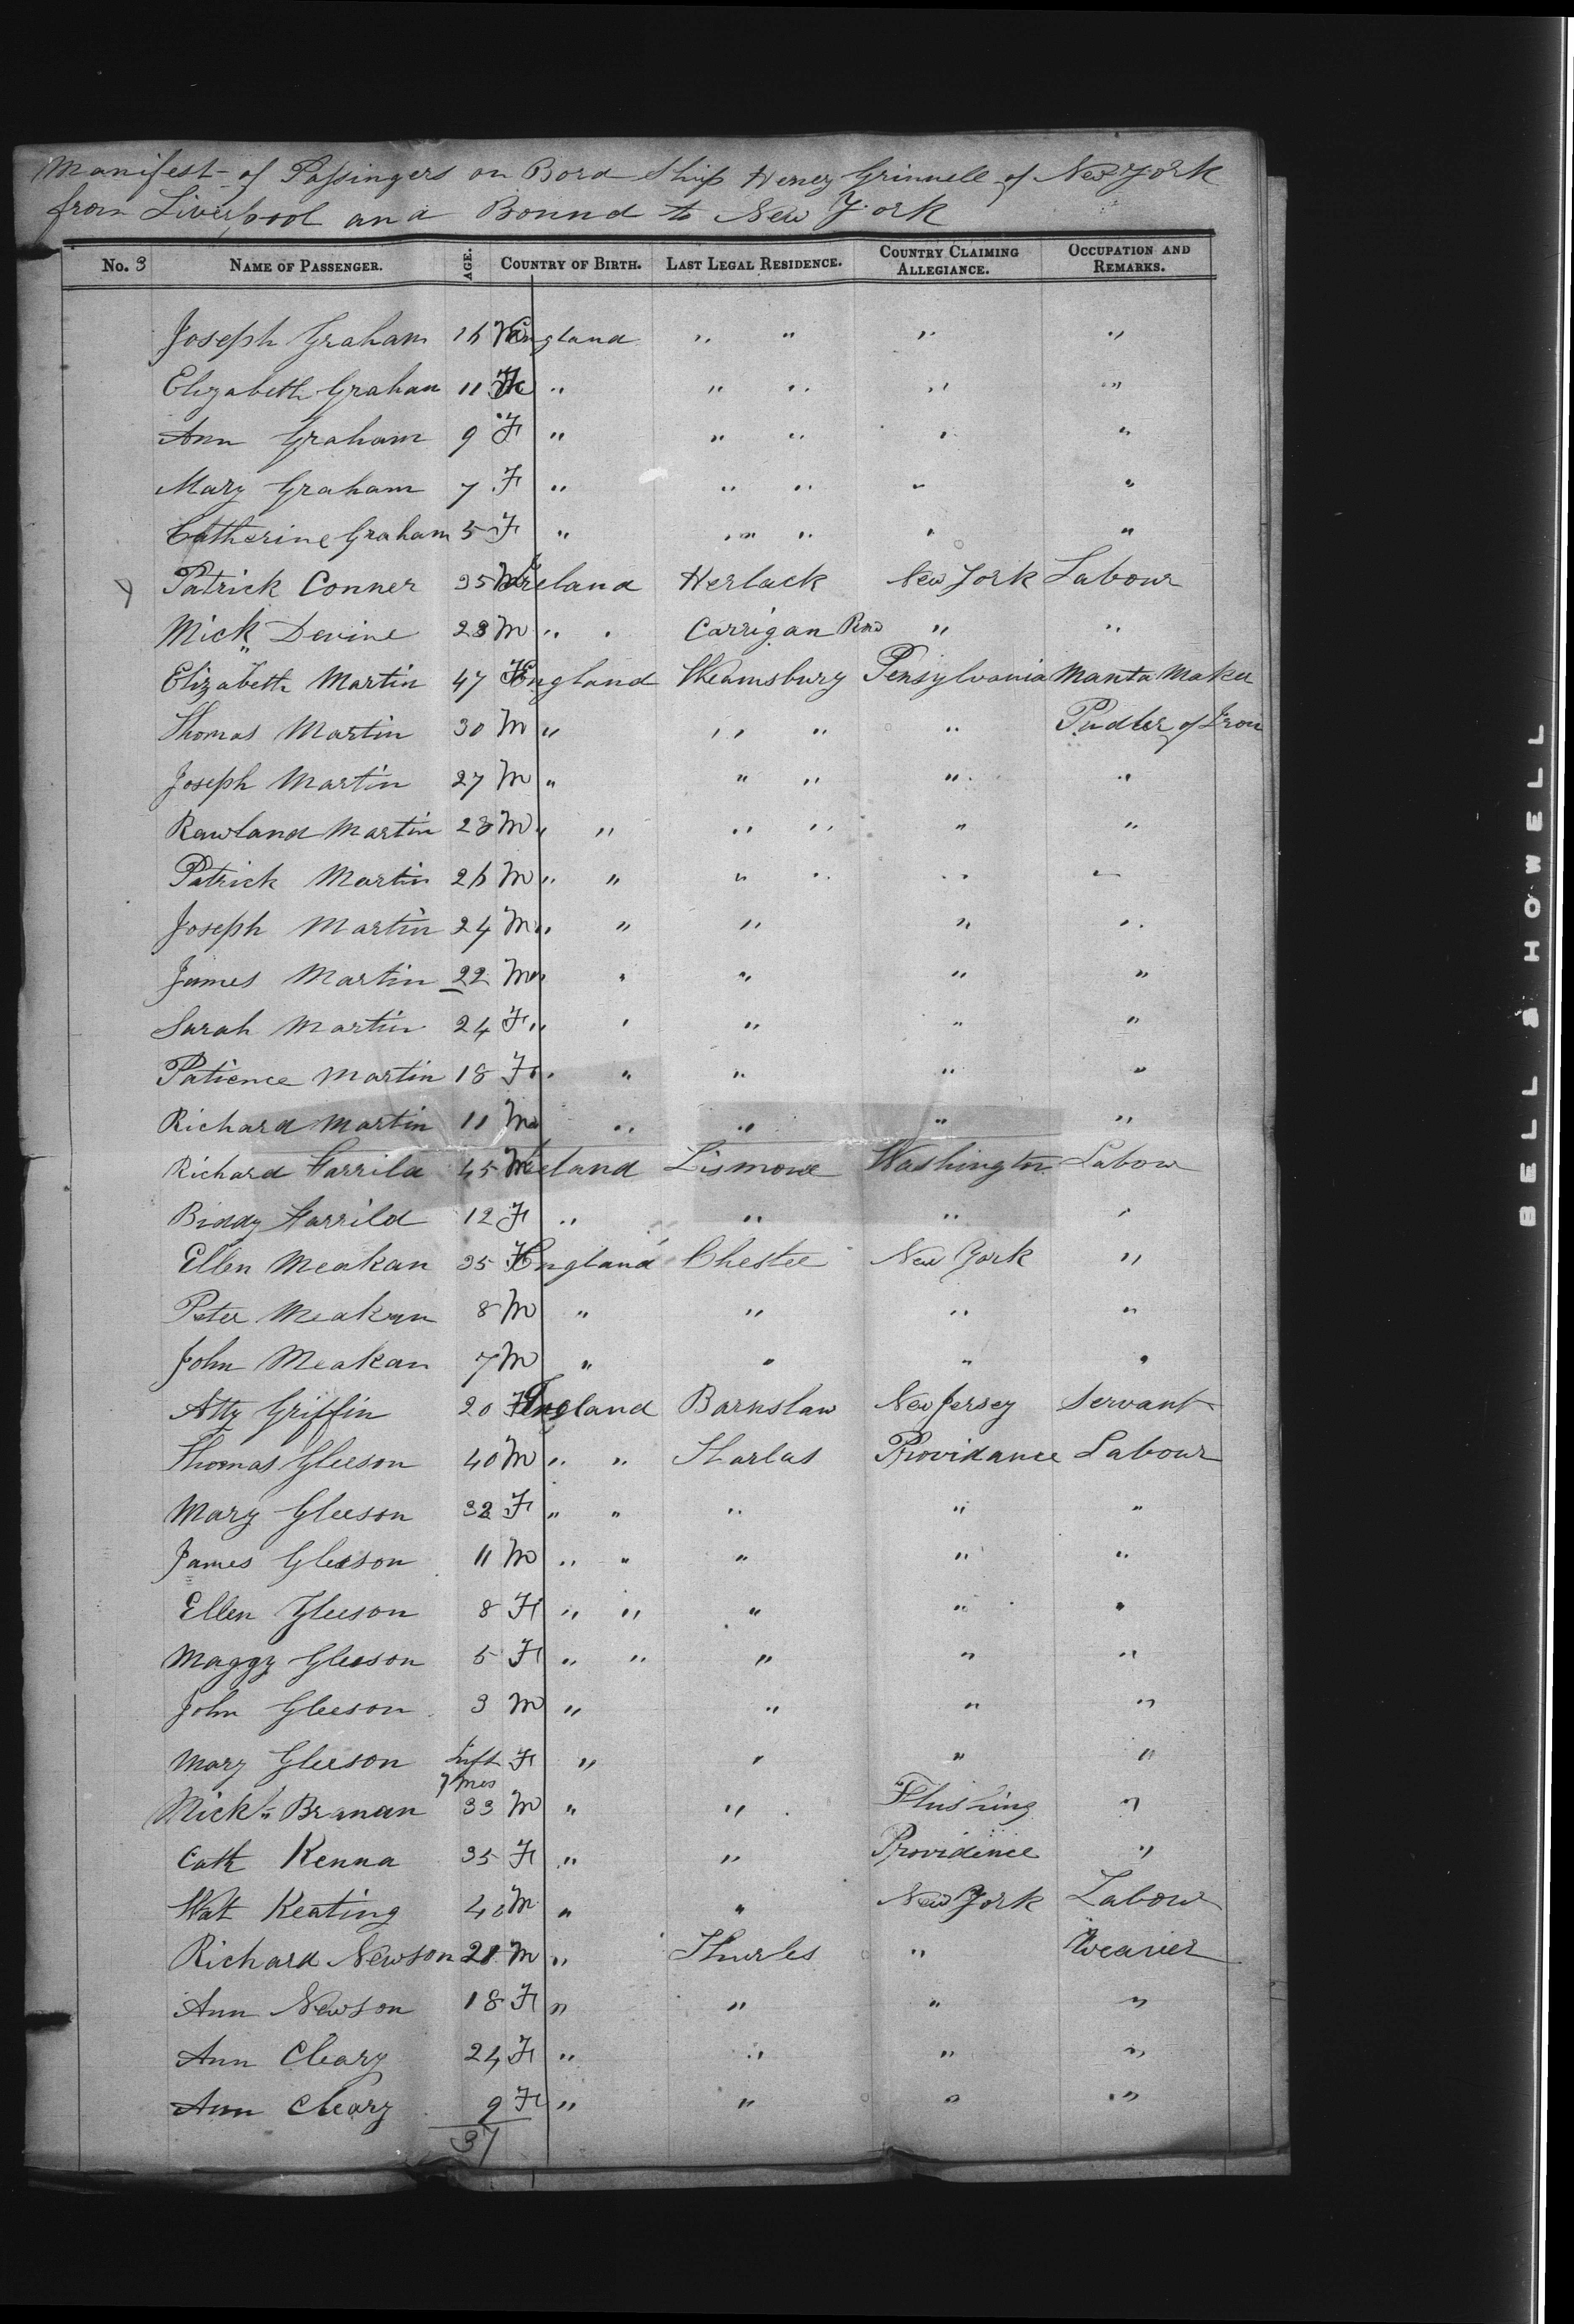 Manifest of Passingers on Bord Ship Henry Grinnell of New York
from Liverpool and Bound to New York
No. 3 NAME OF PASSENGER. AGE. COUNTRY OF BIRTH. LAST LEGAL RESIDENCE. COUNTRY CLAIMING ALLEGIANCE. OCCUPATION AND REMARKS.
Joseph Graham 16 M England " " " "
Elizabeth Graham 11 F " " " " "
Ann Graham 9 F " " " " "
Mary Graham 7 F " " " " "
Catherine Graham 5 F " " " " "
Patrick Conner 35 M Ireland Herlack New York Labour
Mick" Devine 28 M " " Carrigan " "
Elizabeth Martin 47 F England Pensylvania Manta Maker
Thomas Martin 30 M " " " " Pudler of Iron
Joseph Martin 27 M " " " " "
Rawland Martin 28 M " " " " " "
Patrick Martin 26 M " " " " " "
Joseph Martin 24 M " " " " "
James Martin 22 M " " " " "
Sarah Martin 24 F " " " " "
Patience Martin 18 F " " " " "
Richard Martin 11 M " " " "
Richard Farrild 45 M Ireland Lismore Washington Labour
Biddy Farrild 12 F " " " "
Ellen Meakan 35 F England Chester New York "
Peter Meakan 8 M " " " "
John Meakan 7 M " " " "
Atty Griffin 20 F England Barnslaw New Jersey Servant
Thomas Gleeson 40 M " " Tharlas Providance Labour
Mary Gleeson 32 F " " " " "
James Gleeson 11 M " " " " "
Ellen Gleeson 8 F " " " " "
Maggy Gleeson 5 F " " " " "
John Gleeson 3 M " " " "
Mary Gleeson Inft 7 mos F " " " "
Mick" Brenan 33 M " " Flushing "
Cath Kenna 35 F " " Providence "
Wat Keating 40 M " " New York Labour
Richard Newson 21 M " Thurles " Weaver
Ann Newson 18 F " " " "
Ann Cleary 24 F " " " "
Ann Cleary 9 F " " " "
37
BELL & HOWELL